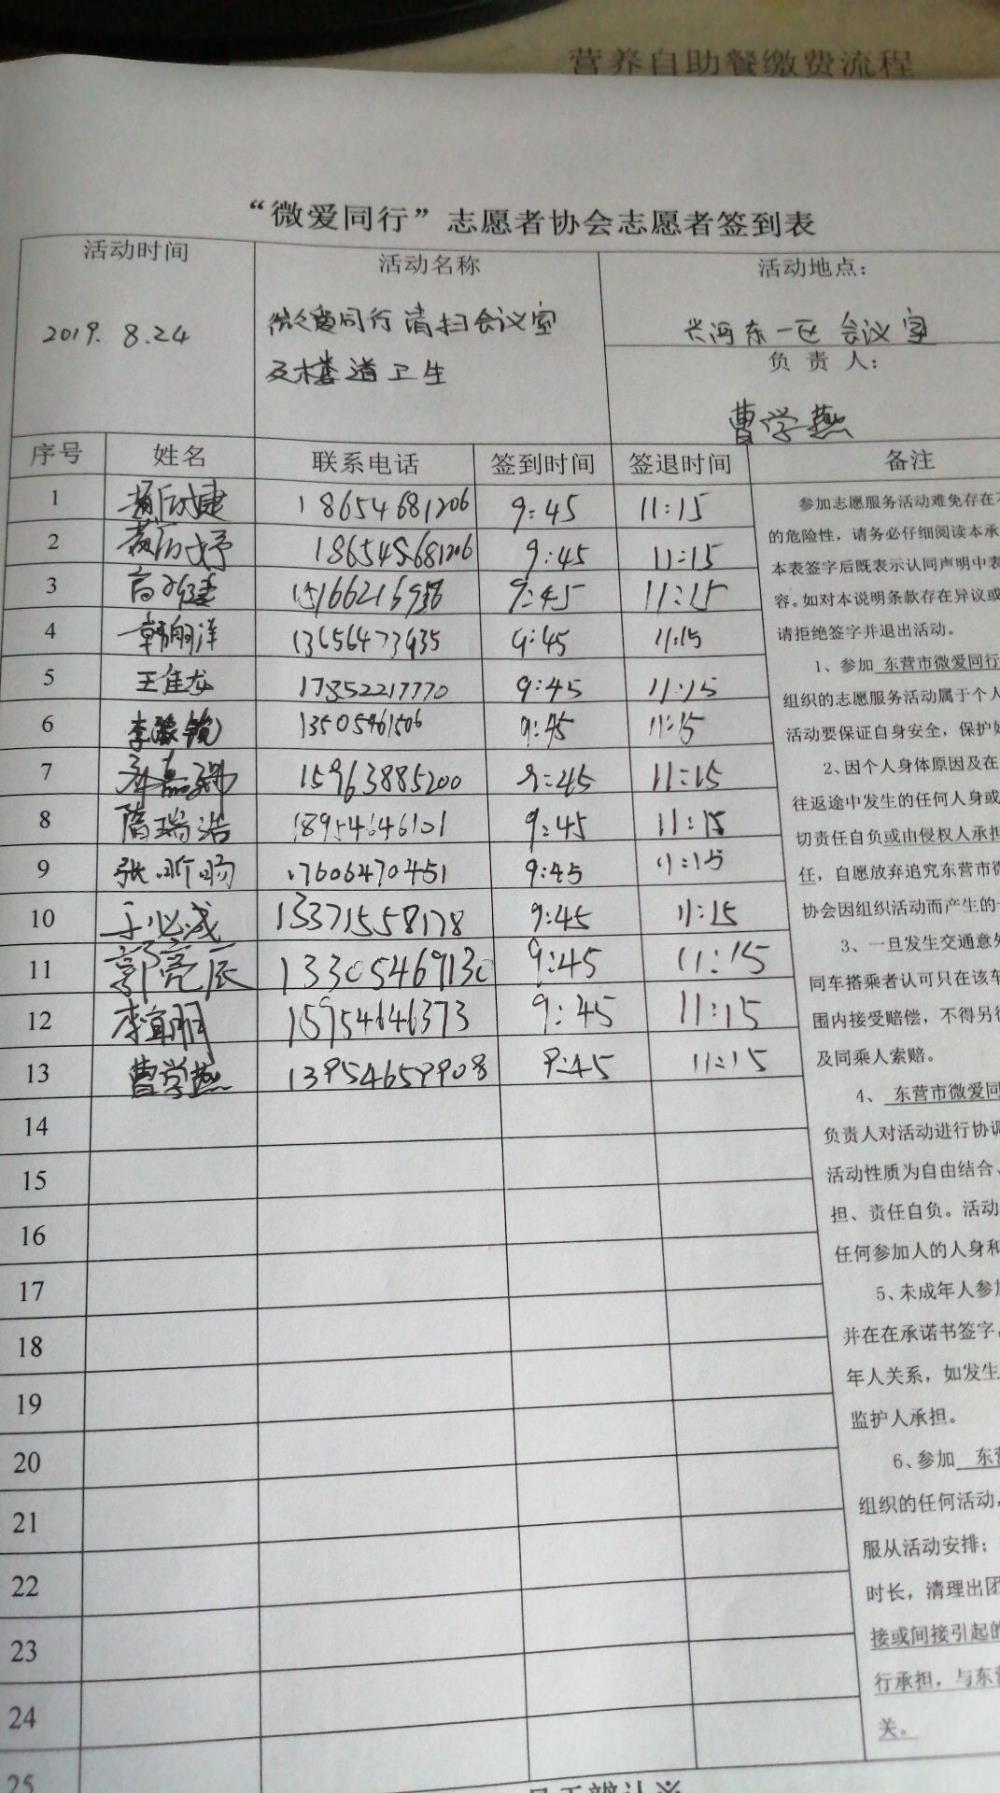 营养自助餐缴费流程
“微爱同行”志愿者协会志愿者签到表
活动时间 活动名称 活动地点：
2019. 8.24 微爱同行清扫会议室 兴河东一区会议室
及楼道卫生 负责人：
曹学燕
序号 姓名 联系电话 签到时间 签退时间 备注
1 18654681206 9:45 11:15
2 186545681206 9:45 11:15
3 9:45 11:15
4 韩翔洋 9:45 11:15
5 王佳龙 17852217770 9:45 11:15
6 李 13505461506 9:45 11:15
7 15963885200 9:45 11:15
8 隋瑞浩 18954646101 9:45 11:15
9 张昕旸 17606470451 9:45 11:15
10 于必成 13371558178 9:45 11:15
11 郭亮辰 13305469130 9:45 11:15
12 李宜朋 15954646373 9:45 11:15
13 曹学燕 13954659908 9:45 11:15
14
15
16
17
18
19
20
21
22
23
24
25
参加志愿服务活动难免存在
的危险性，请务必仔细阅读本承
本表签字后既表示认同声明中表
容。如对本说明条款存在异议或
请拒绝签字并退出活动。
1、参加 东营市微爱同行
组织的志愿服务活动属于个人
活动要保证自身安全，保护
2、因个人身体原因及在
往返途中发生的任何人身或
切责任自负或由侵权人承担
任，自愿放弃追究东营市微
协会因组织活动而产生的一
3、一旦发生交通意外
同车搭乘者认可只在该车
围内接受赔偿，不得另行
及同乘人索赔。
4、 东营市微爱同
负责人对活动进行协调
活动性质为自由结合、
担、责任自负。活动
任何参加人的人身和
5、未成年人参加
并在在承诺书签字，
年人关系，如发生
监护人承担。
6、参加 东营
组织的任何活动，
服从活动安排；
时长，清理出团
接或间接引起的
行承担，与东营
关。